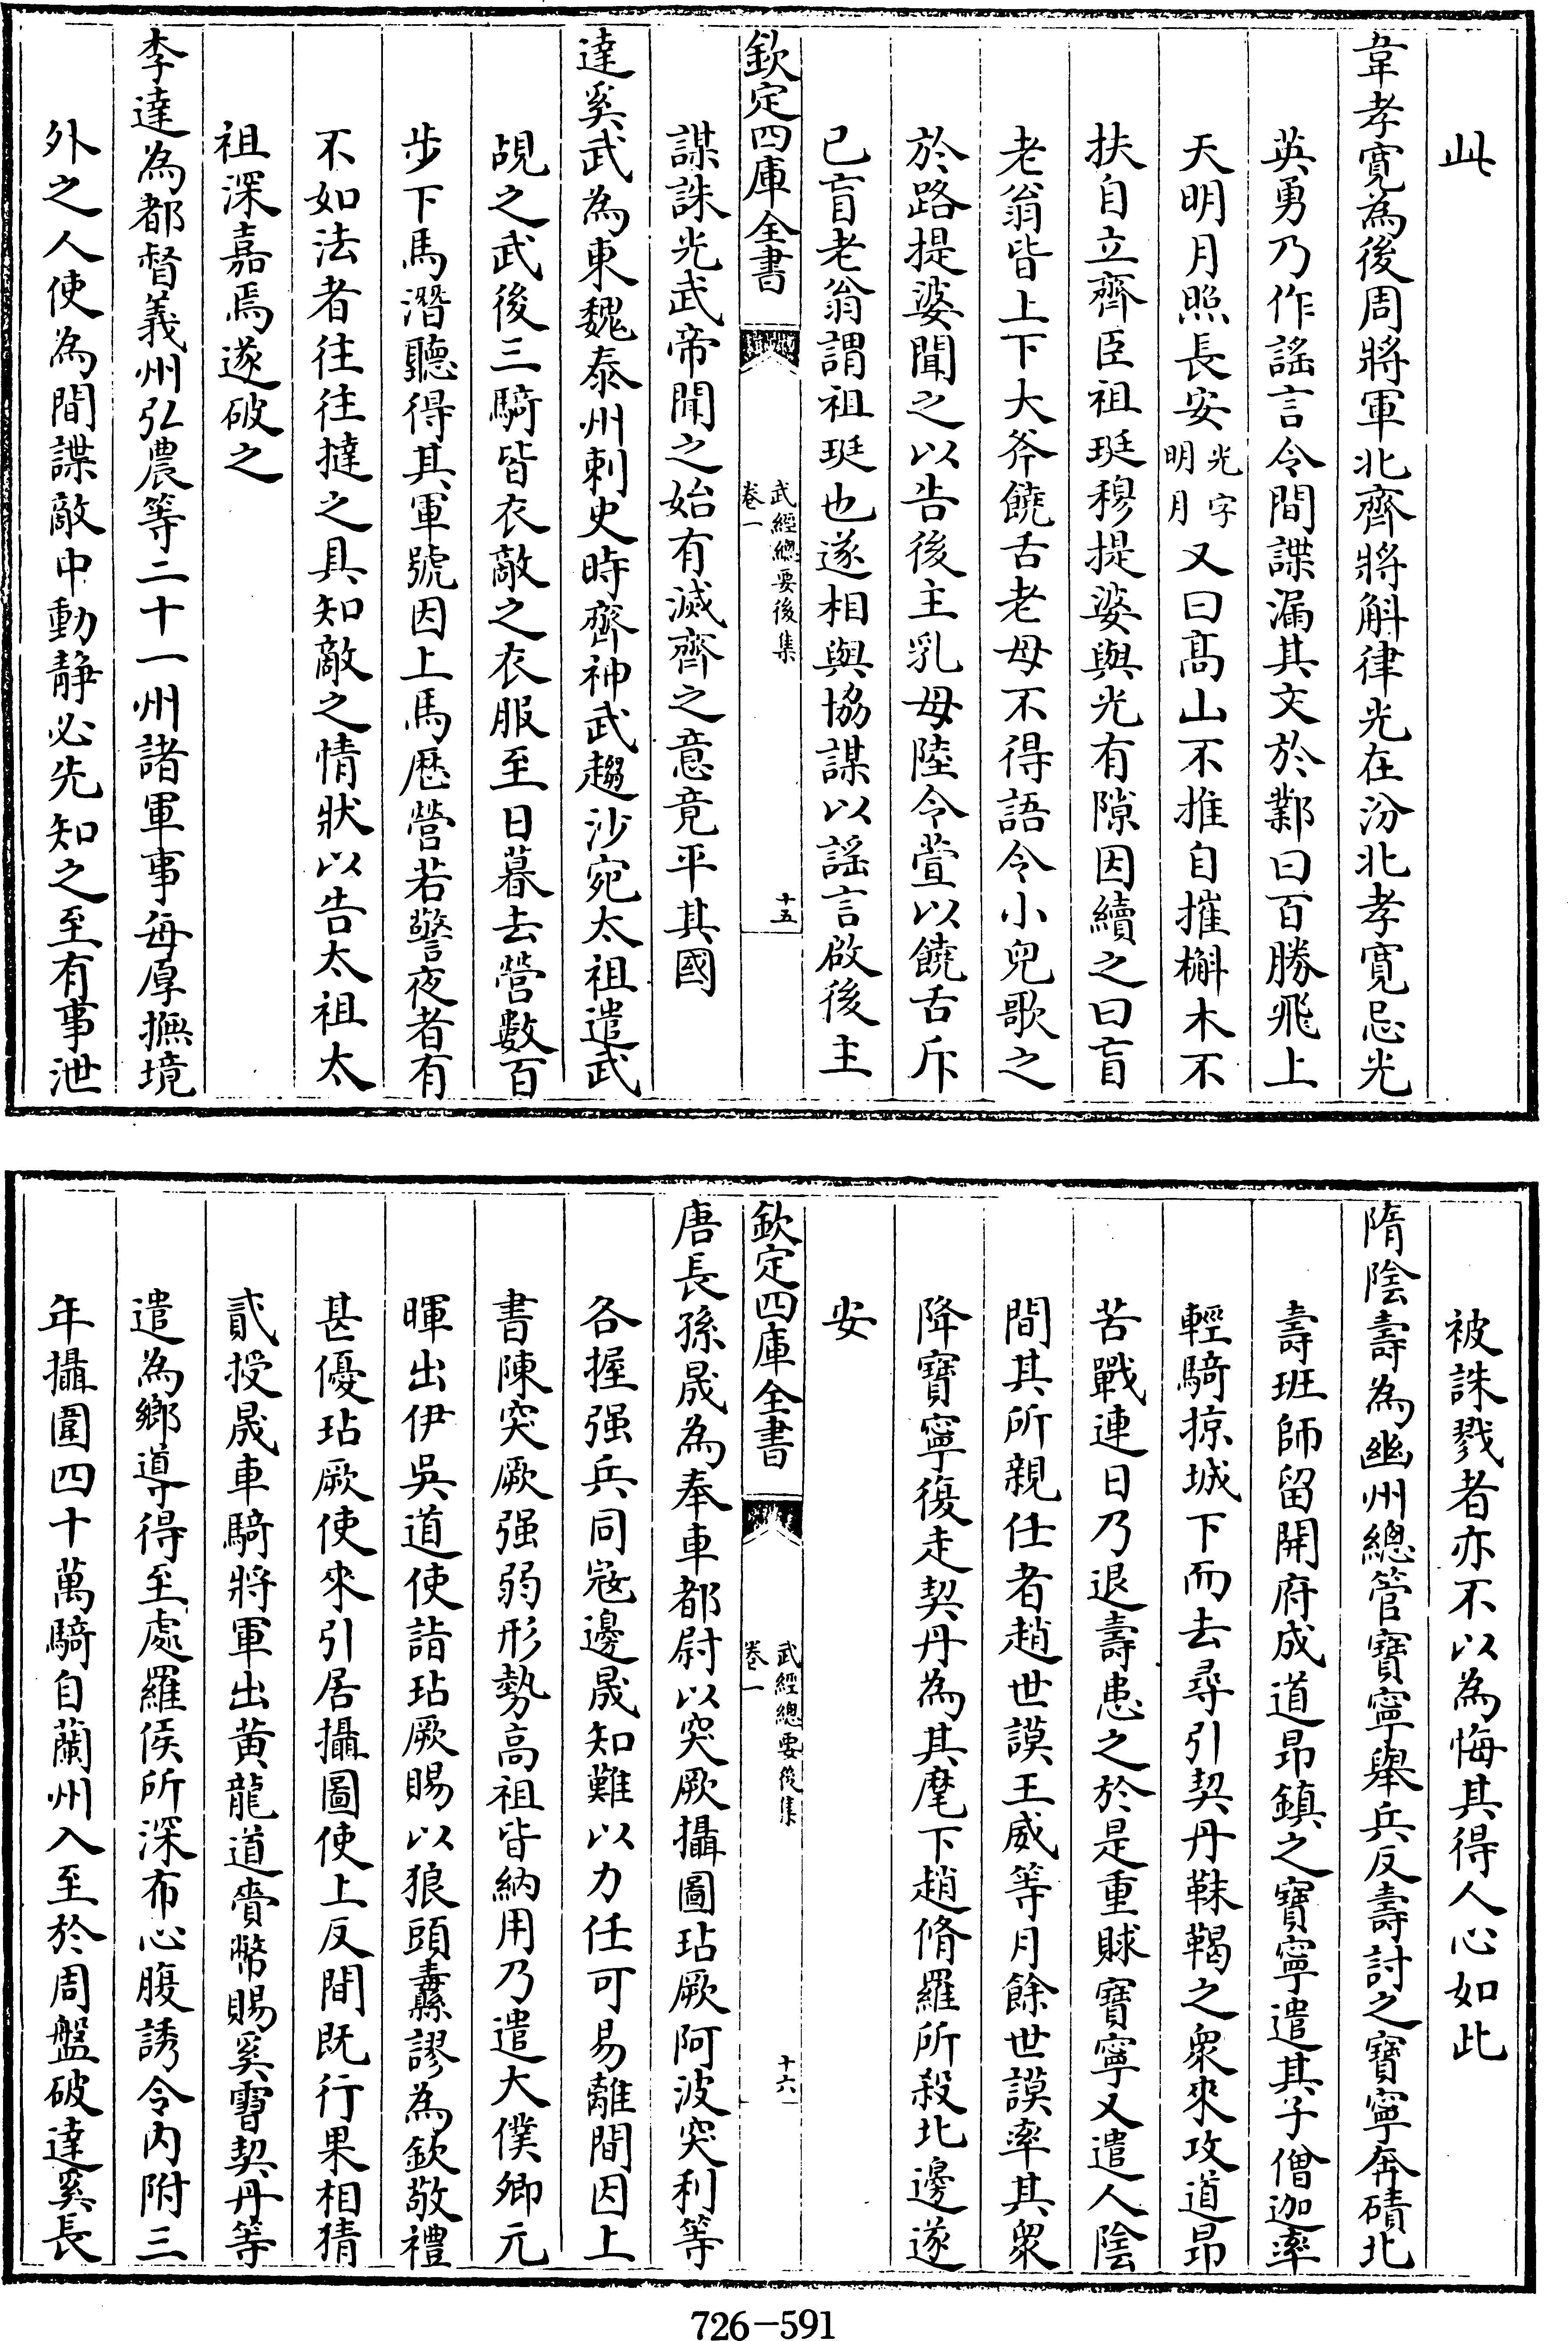 此
韋孝寛為後周將軍北齊將斛律光在汾北孝寛忌光
英勇乃作謡言令間諜漏其文於鄴曰百勝飛上
天明月照長安光字明月又曰髙山不推自摧槲木不
扶自立齊臣祖珽穆提婆與光有隙因續之曰盲
老翁皆上下大斧饒舌老母不得語令小兒歌之
於路提婆聞之以告後主乳母陸令萱以饒舌斥
已盲老翁謂祖珽也遂相與協謀以謡言啟後主
欽定四庫全書
武經總要後集
卷一
十五
謀誅光武帝聞之始有滅齊之意竟平其國
達奚武為東魏泰州刺史時齊神武趨沙宛太祖遣武
覘之武後三騎皆衣敵之衣服至日暮去營數百
步下馬潛聽得其軍號因上馬歴營若警夜者有
不如法者往往撻之具知敵之情狀以告太祖太
祖深嘉焉遂破之
李達為都督義州弘農等二十一州諸軍事每厚撫境
外之人使為間諜敵中動静必先知之至有事泄
被誅戮者亦不以為悔其得人心如此
隋陰壽為幽州總管寶寧舉兵反壽討之寶寧奔磧北
壽班師留開府成道昻鎮之寶寧遣其子僧迦率
輕騎掠城下而去尋引契丹靺鞨之衆來攻道昻
苦戰連日乃退壽患之於是重賕寶寧又遣人陰
間其所親任者趙世謨王威等月餘世謨率其衆
降寶寧復走契丹為其麾下趙脩羅所殺北邊遂
安
欽定四庫全書
武經總要後集
卷一
十六
唐長孫晟為奉車都尉以突厥攝圖玷厥阿波突利等
各握强兵同宼邊晟知難以力任可易離間因上
書陳突厥强弱形勢高祖皆納用乃遣大僕卿元
暉出伊吳道使詣玷厥賜以狼頭纛謬為欽敬禮
甚優玷厥使來引居攝圖使上反間既行果相猜
貳授晟車騎將軍出黄龍道賫幣賜奚霫契丹等
遣為鄉導得至處羅侯所深布心腹誘令内附三
年攝圍四十萬騎自蘭州入至於周盤破達奚長
726-591